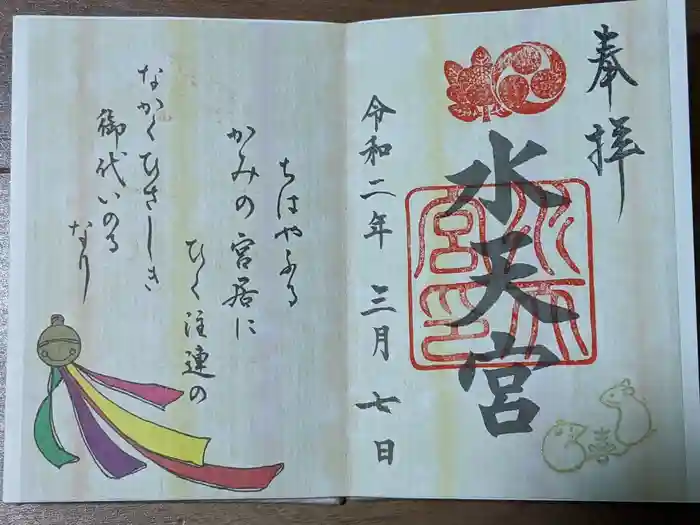 奉拝
水天宮
令和二年 三月 七日
ちはやふる
かみの宮居に
ひく注連の
なかくひさしき
御代いのる
なり